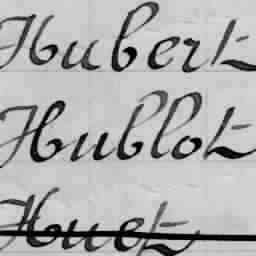 Hubert
Hublot
Huet